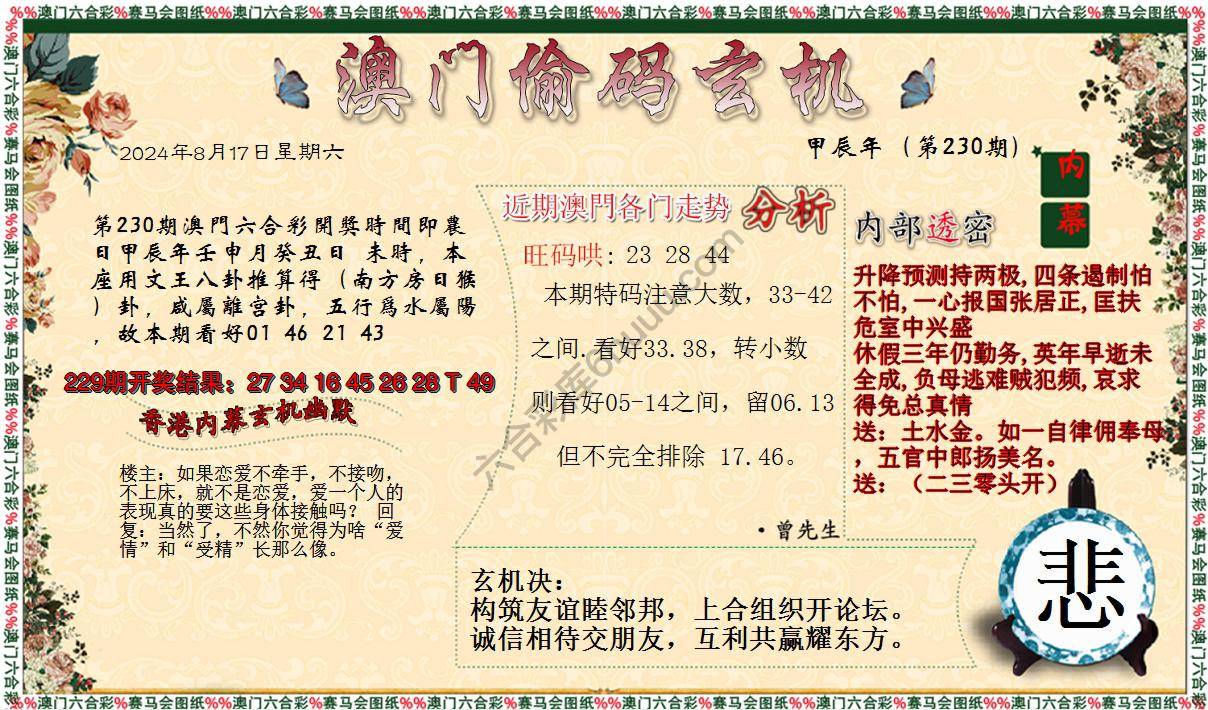 %%澳门六合彩%赛马会图纸%%澳门六合彩%赛马会图纸%%澳门六合彩%赛马会图纸%%澳门六合彩%赛马会图纸%%澳门六合彩%赛马会图纸%%澳门六合彩%赛马会图纸%%
澳门偷码玄机
2024年8月17日星期六
甲辰年（第230期）
内
幕
第230期澳門六合彩開獎時間即農
日甲辰年壬申月癸丑日 未時，本
座用文王八卦推算得（南方房日猴
）卦，咸屬離宫卦，五行爲水屬陽
，故本期看好01 46 21 43
229期开奖结果：27 34 16 45 26 28 T 49
香港内幕玄机幽默
楼主：如果恋爱不牵手，不接吻，
不上床，就不是恋爱，爱一个人的
表现真的要这些身体接触吗？ 回
复：当然了，不然你觉得为啥“爱
情”和“受精”长那么像。
近期澳門各门走势 分析
旺码哄: 23 28 44
本期特码注意大数，33-42
之间.看好33.38，转小数
则看好05-14之间，留06.13
但不完全排除 17.46。
·曾先生
内部透密
升降预测持两极,四条遏制怕
不怕,一心报国张居正,匡扶
危室中兴盛
休假三年仍勤务,英年早逝未
全成,负母逃难贼犯频,哀求
得免总真情
送：土水金。如一自律佣奉母
，五官中郎扬美名。
送：（二三零头开）
玄机决：
构筑友谊睦邻邦，上合组织开论坛。
诚信相待交朋友，互利共赢耀东方。
悲